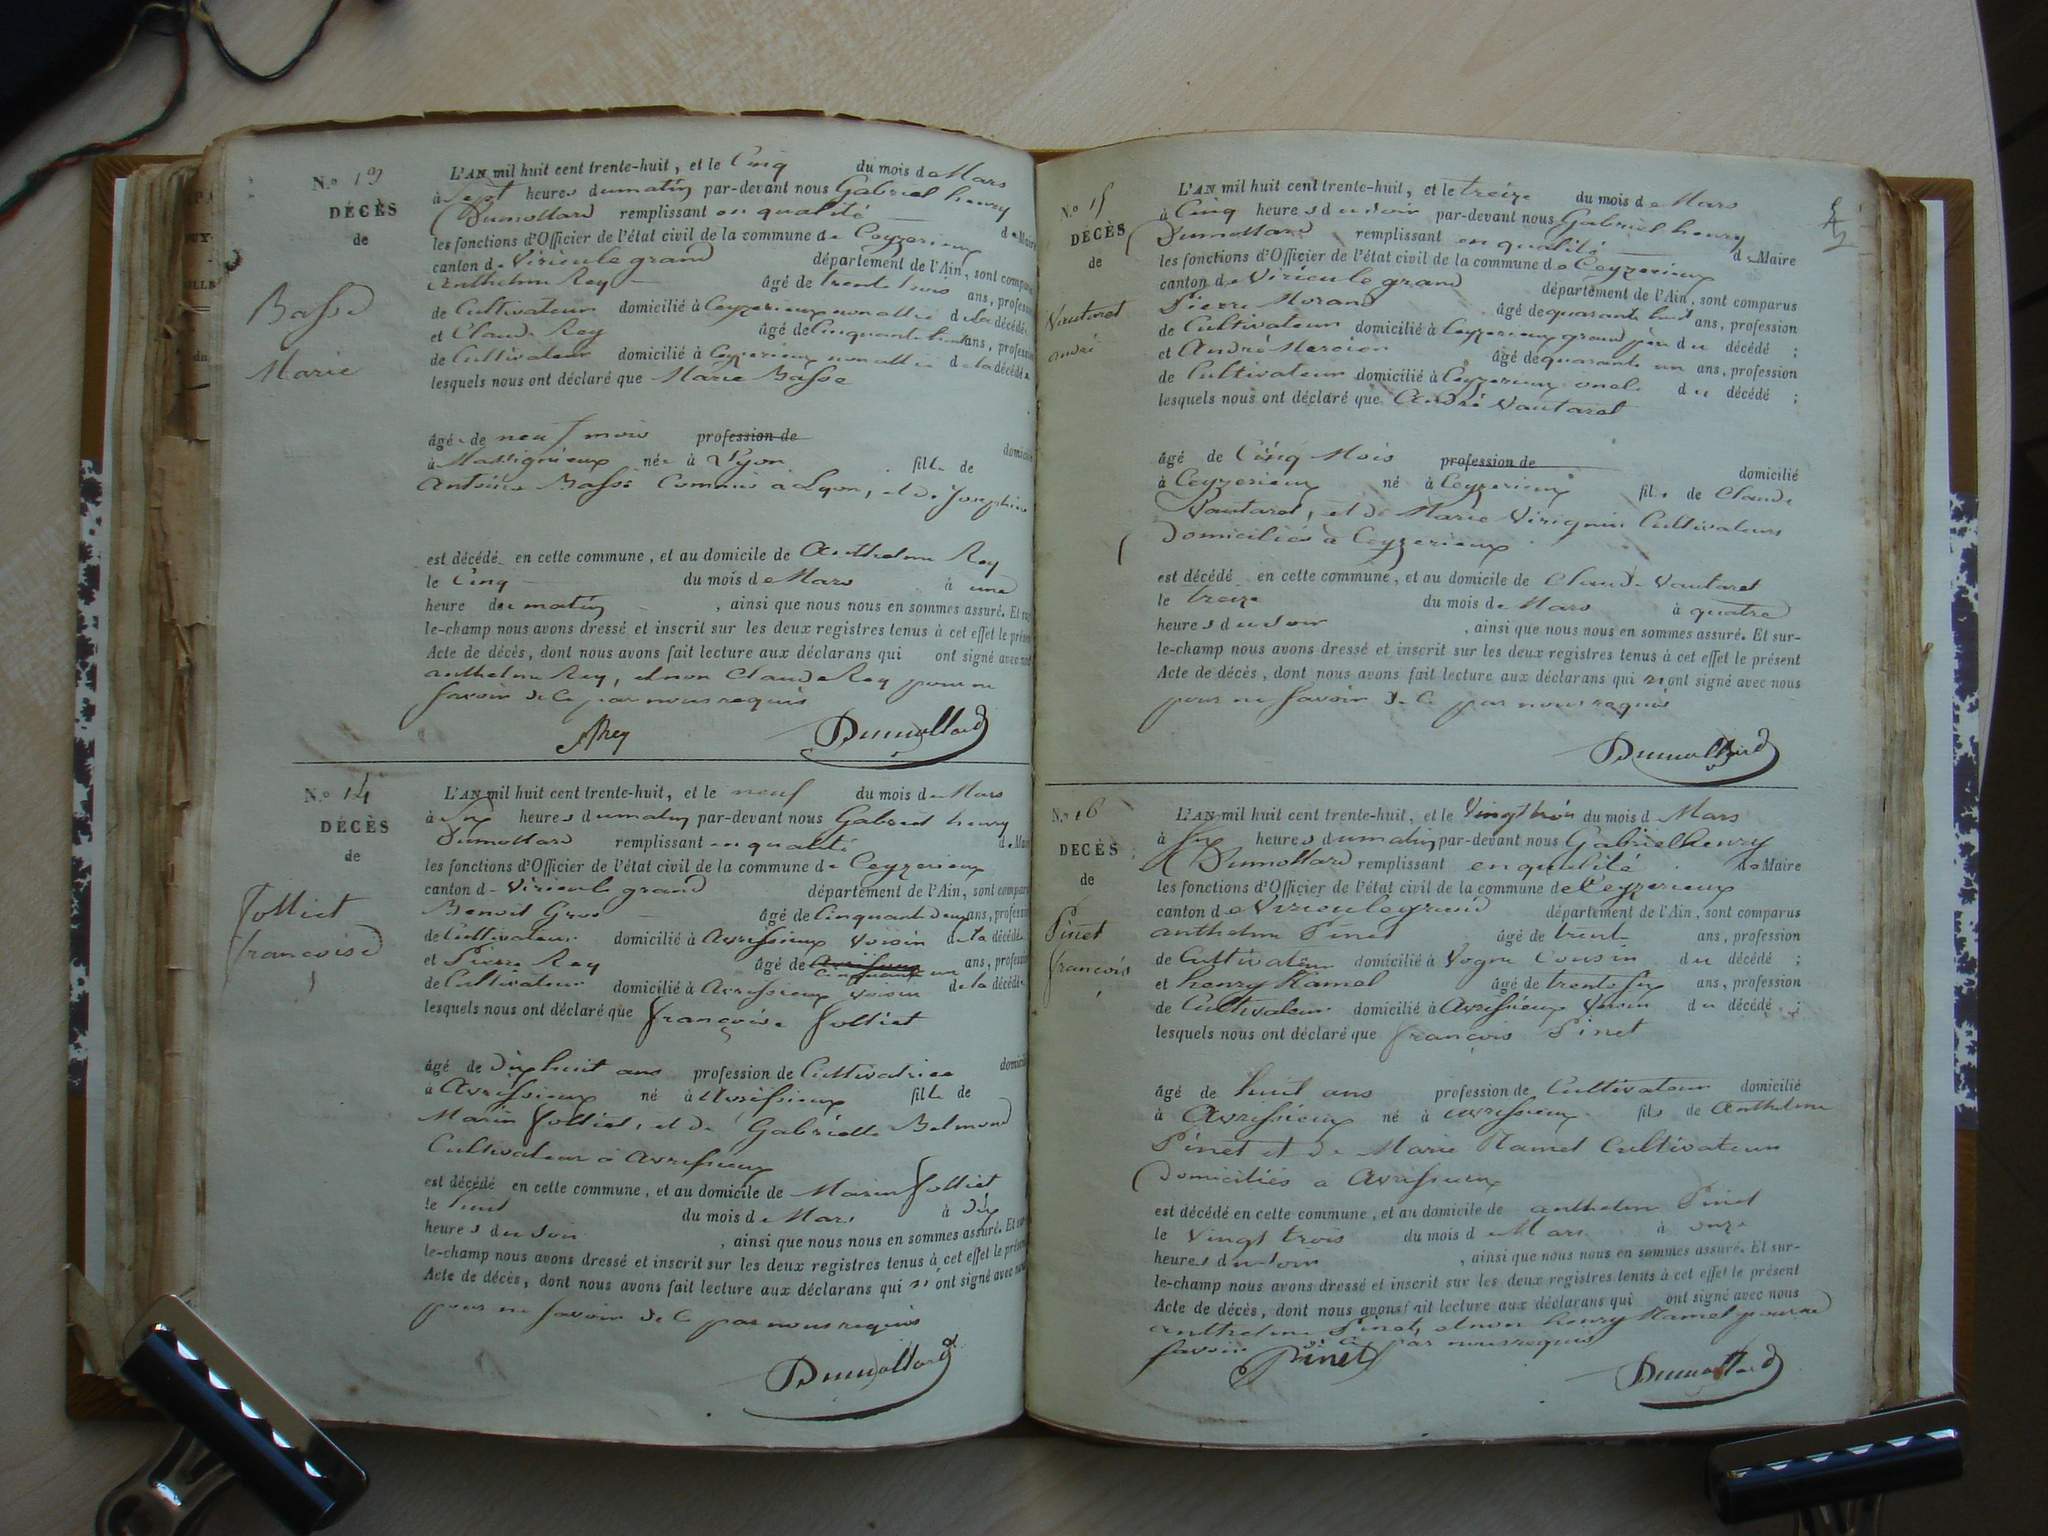 N.o 13
DÉCÈS
de
Basse
Marie
L'AN mil huit cent trente-huit, et le Cinq du mois de Mars
à Sept heures du matin par-devant nous Gabriel henry
Dumollard remplissant en qualité de Maire
les fonctions d'Officier de l'état civil de la commune de Ceyzerieux
canton de Virieu le grand département de l'Ain, sont comparus
Anthelme Rey âgé de trente trois ans, profession
de Cultivateur domicilié à Ceyzerieux non allié de la décédée
et Claude Rey âgé de Cinquante huit ans, profession
de Cultivateur domicilié à Ceyzerieux non allié de la décédée
lesquels nous ont déclaré que Marie Basse
âgé de neuf mois profession de domicilié
à Massignieux née à Lyon fille de
Antoine Basse Commis à Lyon, et de Josephine
est décédé en cette commune, et au domicile de Anthelme Rey
le Cinq du mois de Mars à une
heure du matin, ainsi que nous nous en sommes assuré. Et sur
le-champ nous avons dressé et inscrit sur les deux registres tenus à cet effet le présent
Acte de décès, dont nous avons fait lecture aux déclarans qui ont signé avec nous
anthelme Rey, et non Claude Rey pour ne
savoir de ce par nous requis
ARey Dumollard
N.o 14
DÉCÈS
de
Folliet
francoise
L'AN mil huit cent trente-huit, et le neuf du mois de Mars
à Six heures du matin par-devant nous Gabriel henry
Dumollard remplissant en qualité de Maire
les fonctions d'Officier de l'état civil de la commune de Ceyzerieux
canton de Virieu le grand département de l'Ain, sont comparus
Benoit Gros âgé de Cinquante deux ans, profession
de Cultivateur domicilié à Avressieux voisin de la décédée
et Pierre Rey âgé de Cinquante un ans, profession
de Cultivateur domicilié à Avressieux voisin de la décédée
lesquels nous ont déclaré que françoise folliet
âgé de dix huit ans profession de Cultivatrice domicilié
à Avressieux né à Avressieux fille de
Marin folliet, et de Gabrielle Belmond
Cultivateur à Avressieux
est décédé en cette commune, et au domicile de Marin folliet
le huit du mois de Mars à dix
heures du soir, ainsi que nous nous en sommes assuré. Et sur
le-champ nous avons dressé et inscrit sur les deux registres tenus à cet effet le présent
Acte de décès, dont nous avons fait lecture aux déclarans qui n'ont signé avec nous
pour ne savoir de ce par nous requis
Dumollard
N.o 15
DÉCÈS
de
Vautaret
andré
L'AN mil huit cent trente-huit, et le treize du mois de Mars
à Cinq heures du soir par-devant nous Gabriel henry
Dumollard remplissant en qualité de Maire
les fonctions d'Officier de l'état civil de la commune de Ceyzerieux
canton de Virieu le grand département de l'Ain, sont comparus
Pierre Morand âgé de quarante huit ans, profession
de Cultivateur domicilié à Ceyzerieux grand père du décédé ;
et André Mercier âgé de quarante un ans, profession
de Cultivateur domicilié à Ceyzerieux oncle du décédé ;
lesquels nous ont déclaré que André Vautaret
âgé de Cinq Mois profession de domicilié
à Ceyzerieux né à Ceyzerieux fils de Claude
Vautaret, et de Marie Virignin Cultivateurs
Domiciliés à Ceyzerieux
est décédé en cette commune, et au domicile de Claude Vautaret
le treize du mois de Mars à quatre
heures du soir, ainsi que nous nous en sommes assuré. Et sur-
le-champ nous avons dressé et inscrit sur les deux registres tenus à cet effet le présent
Acte de décès, dont nous avons fait lecture aux déclarans qui n'ont signé avec nous
pour ne savoir de ce par nous requis
Dumollard
N.o 16
DÉCÈS
de
Pinet
francois
L'AN mil huit cent trente-huit, et le Vingt trois du mois d Mars
à Six heures du matin par-devant nous Gabriel henry
Dumollard remplissant en qualité de Maire
les fonctions d'Officier de l'état civil de la commune de Ceyzerieux
canton de Virieu le grand département de l'Ain, sont comparus
anthelme Pinet âgé de trente ans, profession
de Cultivateur domicilié à Vogne Cousin du décédé ;
et henry Hamel âgé de trente six ans, profession
de Cultivateur domicilié à Avressieux Voisin du décédé ;
lesquels nous ont déclaré que françois Pinet
âgé de huit ans profession de Cultivateur domicilié
à Avressieux né à avressieux fils de Anthelme
Pinet et de Marie Hamel Cultivateurs
Domiciliés a Avressieux
est décédé en cette commune, et au domicile de anthelme Pinet
le Vingt trois du mois d Mars à onze
heures du soir, ainsi que nous nous en sommes assuré. Et sur-
le-champ nous avons dressé et inscrit sur les deux registres tenus à cet effet le présent
Acte de décès, dont nous avons fait lecture aux déclarans qui ont signé avec nous
anthelme Pinet, et non henry Hamel pour ne
savoir de ce par nous requis
Pinet Dumollard